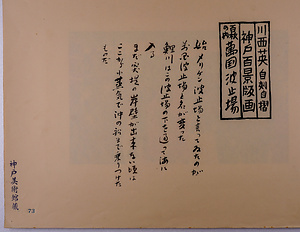 川西英 自刻自摺
神戸百景版画
百景の内 萬国波止場
始めメリケン波止場と言ってゐたのが
萬国波止場と名が変った
鯉川はこの波止場の下を通って海に
入る
まだ突堤の岸壁が出来ない頃に
ここから小蒸気で沖の船まで乗りつけた
ものだ
神戸美術館蔵
73